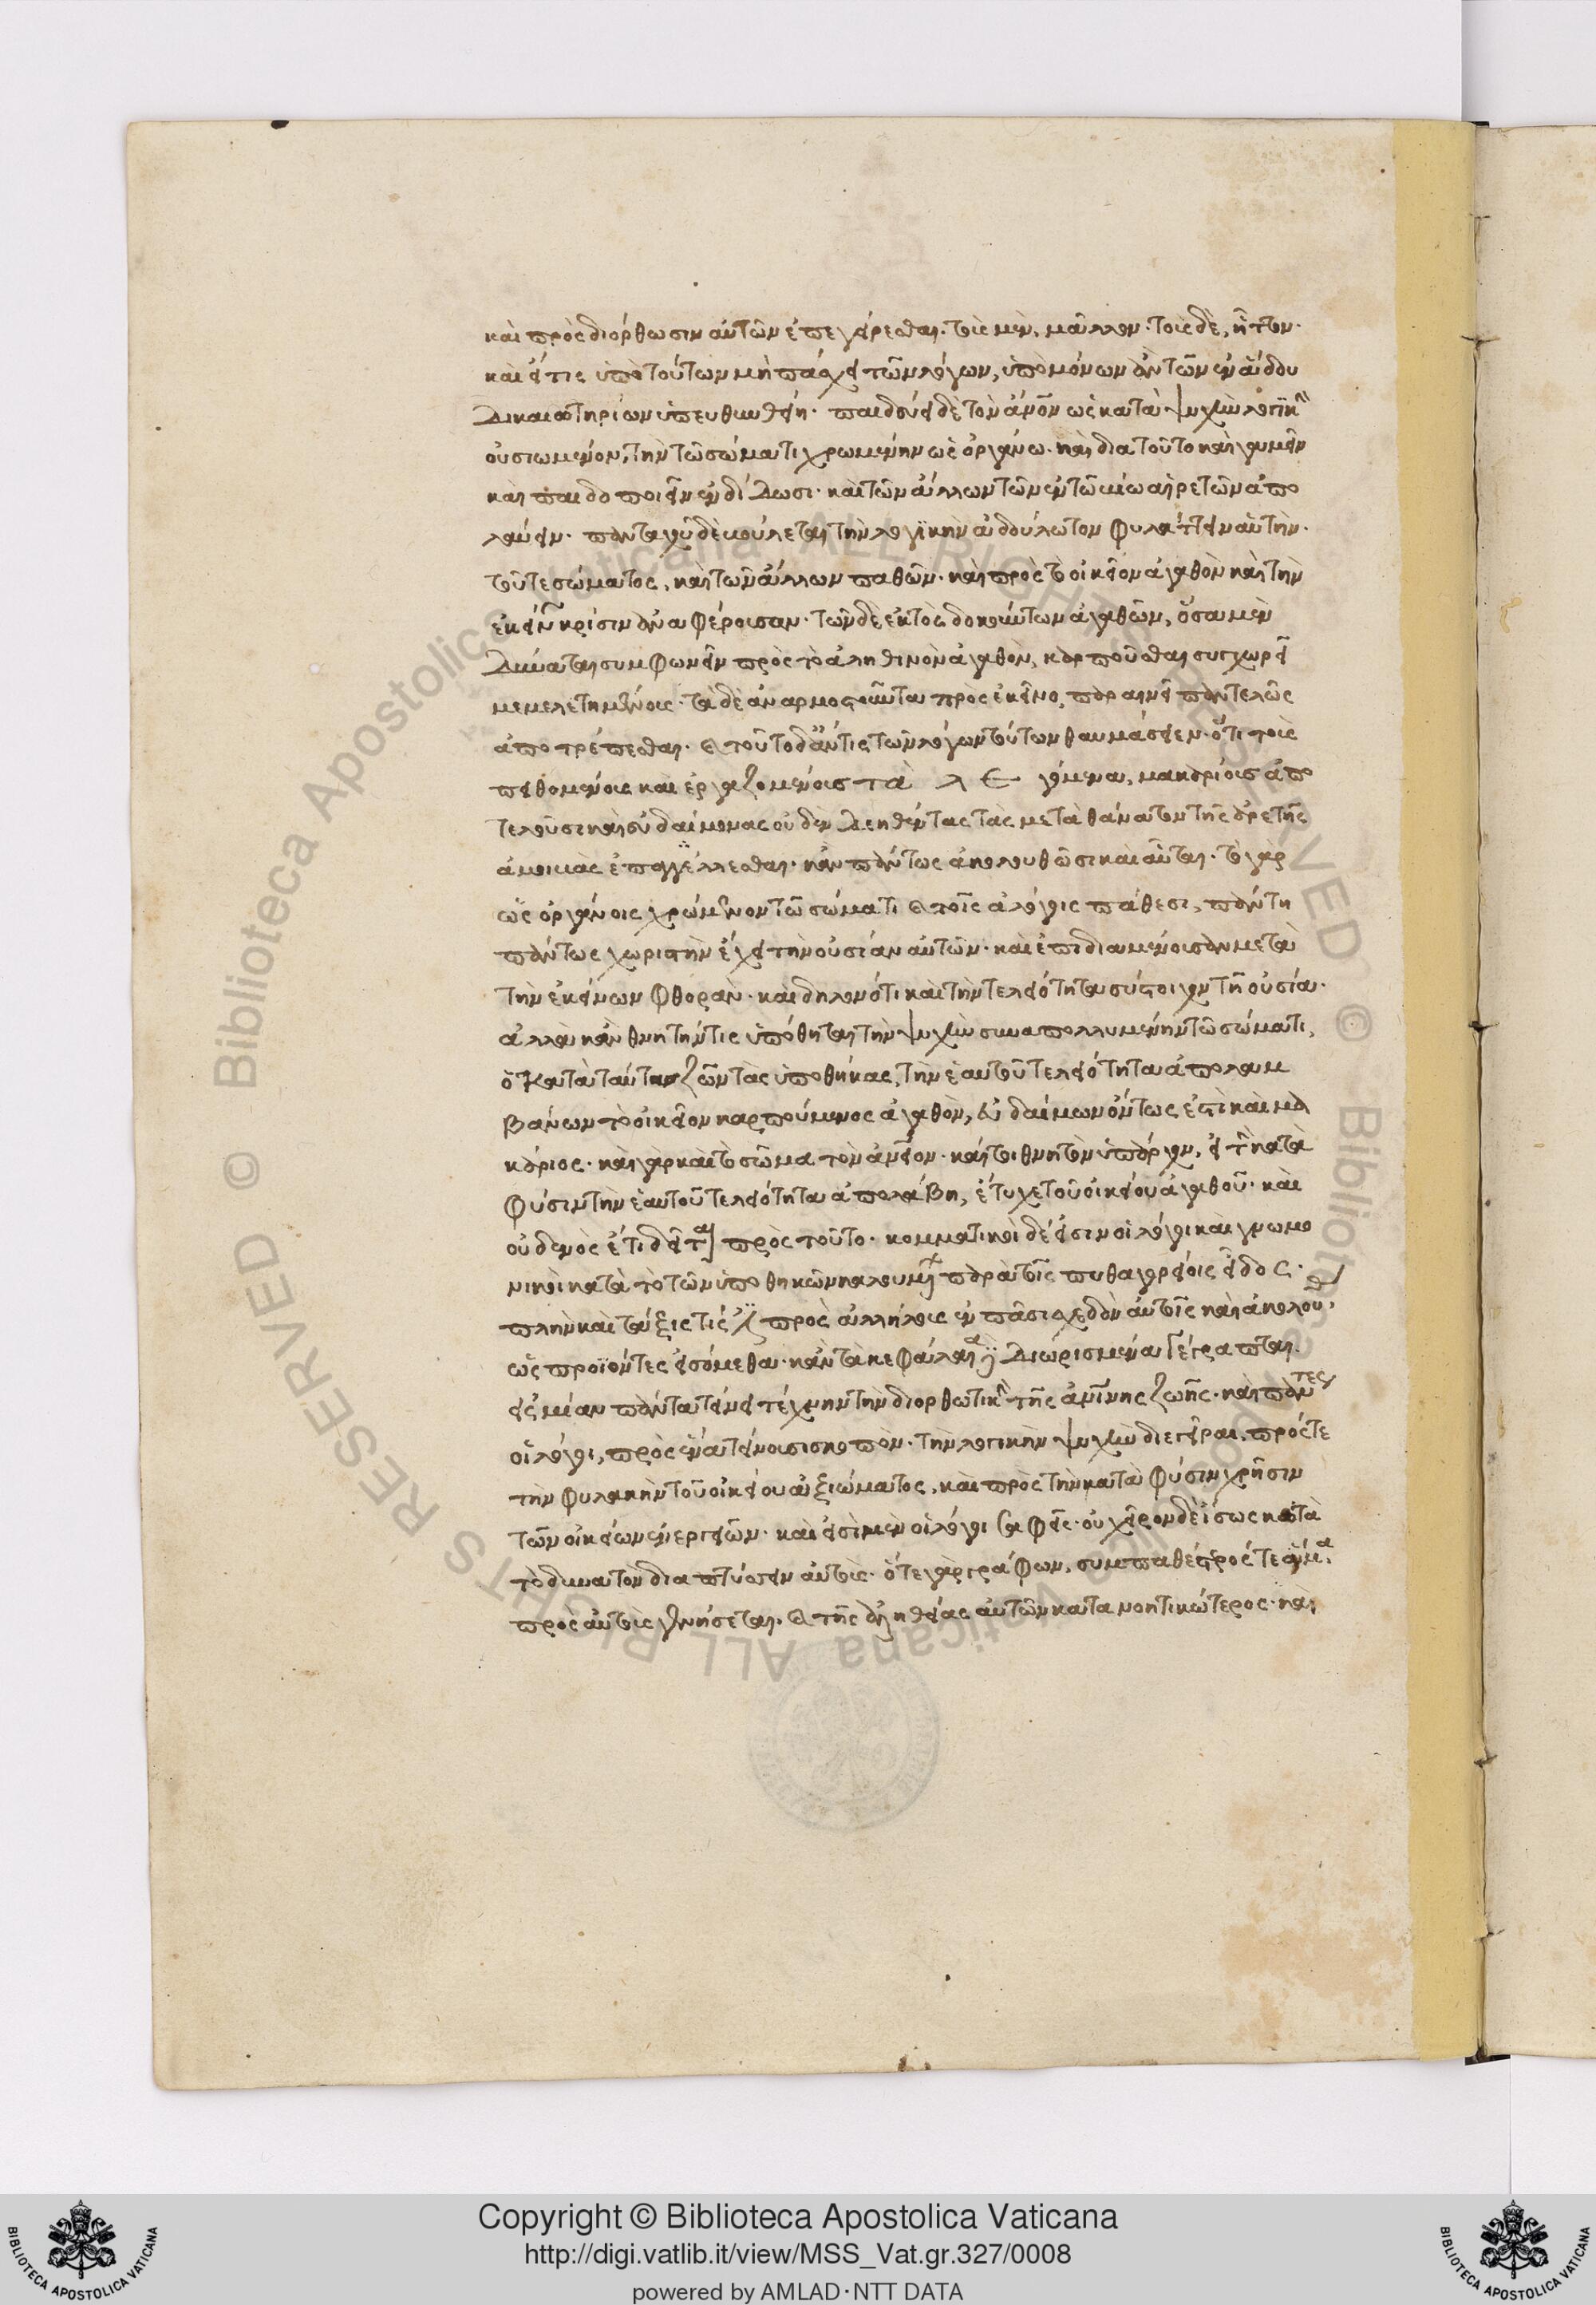 καὶ πρὸς διόρθωσιν αὐτῶν ἐπεγείρεσθαι. τοῖς μὲν, μᾶλλον. τοῖς δὲ, ἧττον.
καὶ εἴ τις ὑπὸ τούτων μὴ πάσχει τῶν λόγων, ὑπὸ μόνων ἂν τῶν ἐν ἅδου
δικαστηρίων ὑπευθυνθείη. παιδεύει δὲ τὸν ἄνον ὡς κατὰ ψυχὴν λογικὴν
οὐσιωμένον, τὴν τῶ σώματι χρωμένην ὡς ὀργάνω. καὶ διὰ τοῦτο καὶ γαμεῖν
καὶ παιδοποιεῖν ἐνδίδωσι. καὶ τῶν ἄλλων τῶν ἐν τῶ βίω αἱρετῶν ἀπο
λαύειν. πανταχοῦ δὲ βούλεται τὴν λογικὴν ἀδούλωτον φυλάττειν αὐτὴν.
τοῦ τε σώματος, καὶ τῶν ἄλλων παθῶν. καὶ πρὸς τὸ οἰκεῖον ἀγαθὸν καὶ τὴν
ἐκείνου κρίσιν ἀναφέρουσαν. τῶν δὲ ἐκτὸς δοκούντων ἀγαθῶν, ὅσα μὲν
δύναται συμφωνεῖν πρὸς τὸ ἀληθινὸν ἀγαθὸν, καρποῦσθαι συγχωρεῖ
μεμελετημένοις. τὰ δὲ ἀναρμοστοῦντα πρὸς ἐκεῖνο, παραινεῖ παντελῶς
ἀποτρέπεσθαι. καὶ τοῦτο δ' ἄν τις τῶν λόγων τούτων θαυμάσειεν. ὅτι τοὺς
πειθομένους καὶ ἐργαζομένους τὰ λε γόμενα, μακαρίους ἀπο
τελοῦσι καὶ εὐδαίμονας οὐδὲν δεηθέντας τὰς μετὰ θάνατον τῆς ἀρετῆς
ἀμοιβὰς ἐπαγγέλλεσθαι. κἂν πάντως ἀκολουθῶσι καὶ αὗται. τὸ γὰρ
ὡς ὀργάνοις χρώμενον τῶ σώματι καὶ τοῖς ἀλόγοις πάθεσι, πάντη
πάντως χωριστὴν ἔχει τὴν οὐσίαν αὐτῶν. καὶ ἐπιδιαμένουσαν μετὰ
τὴν ἐκείνων φθορὰν. καὶ δηλονότι καὶ τὴν τελειότητα σύστοιχον τῆ οὐσία.
ἀλλὰ κἂν θνητήν τις ὑπόθηται τὴν ψυχὴν συναπολλυμένην τῶ σώματι,
ὁ κατὰ ταύτας ζῶν τὰς ὑποθήκας, τὴν ἑαυτοῦ τελειότητα ἀπολαμ
βάνων τὸ οἰκεῖον καρπούμενος ἀγαθὸν, εὐδαίμων ὄντως ἐστὶ καὶ μα
κάριος. καὶ γὰρ καὶ τὸ σῶμα τὸ ἀνθρώπειον. καίτοι θνητὸν ὑπάρχον, εἰ τὴν κατὰ
φύσιν τὴν ἑαυτοῦ τελειότητα ἀπολάβη, ἔτυχε τοῦ οἰκείου ἀγαθοῦ. καὶ
οὐδενὸς ἔτι δεῖται πρὸς τοῦτο. κομματικοὶ δέ εἰσιν οἱ λόγοι καὶ γνωμο
νικοὶ κατὰ τὸ τῶν ὑποθηκῶν καλουμένων παρὰ τοῖς πυθαγορείοις εἶδος.
πλὴν καὶ τάξις τίς ἐστι πρὸς ἀλλήλους ἐν πᾶσι σχεδὸν αὐτοῖς καὶ ἀκολουθία,
ὡς προϊόντες εἰσόμεθα. κἂν τὰ κεφάλαια διωρισμένα γέγραπται.
εἰς μίαν πάντα τείνει τέχνην τὴν διορθωτικὴν τῆς ἀνίνης ζωῆς. καὶ πάντες
οἱ λόγοι, πρὸς ἕνα τείνουσι σκοπὸν. τὴν λογικὴν ψυχὴν διεγεῖραι, πρός τε
τὴν φυλακὴν τοῦ οἰκείου ἀξιώματος, καὶ πρὸς τὴν κατὰ φύσιν χρῆσιν
τῶν οἰκείων ἐνεργειῶν. καὶ εἰσὶ μὲν οἱ λόγοι σαφεῖς. οὐ χεῖρον δὲ ἴσως κατὰ
τὸ δυνατὸν διαπτύσσειν αὐτοὺς. ὅ τε γὰρ γράφων, συμπαθέστερός τε ἅμα
πρὸς αὐτοὺς γενήσεται. καὶ τῆς ἀληθείας αὐτῶν κατανοητικώτερος. καὶ
Copyright © Biblioteca Apostolica Vaticana
http://digi.vatlib.it/view/MSS_Vat.gr.327/0008
powered by AMLAD·NTT DATA